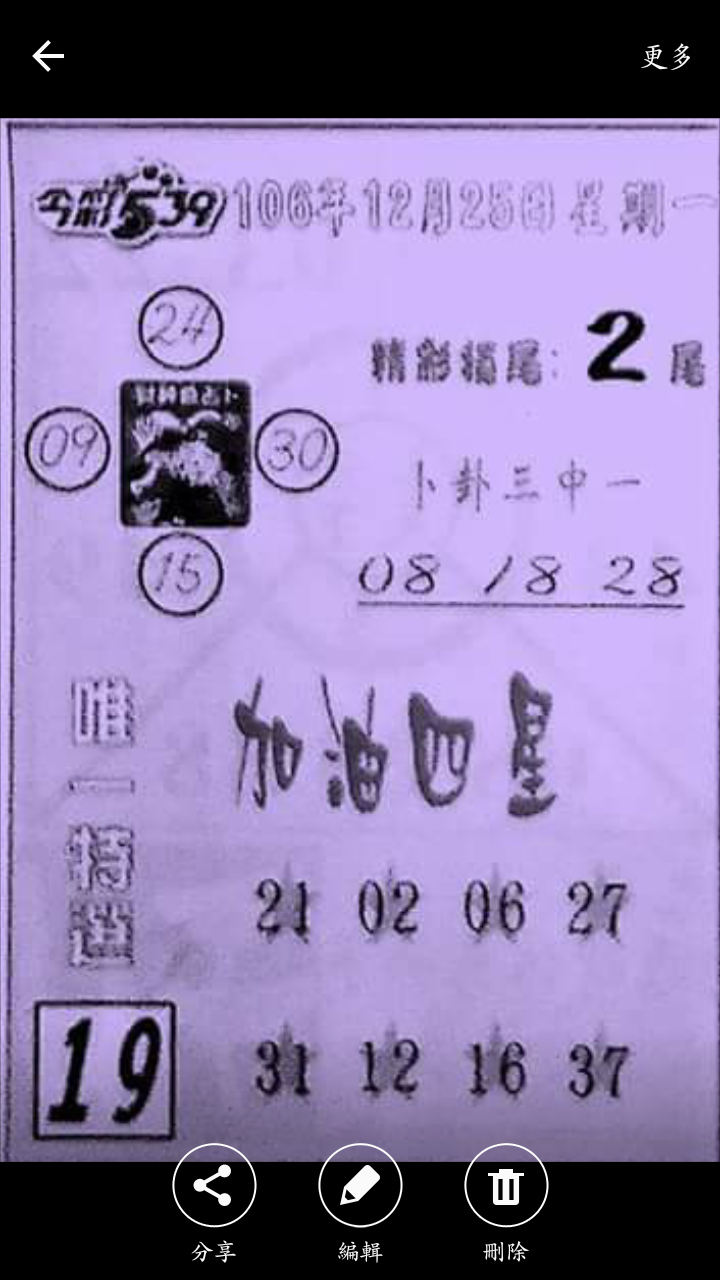 更多
今彩539 106年12月25日 星期一
24
精彩 尾: 2 尾
財神爺占卜
09 30
卜卦三中一
15
08 18 28
唯一特
21 02 06 27
19
31 12 16 37
分享 編輯 刪除